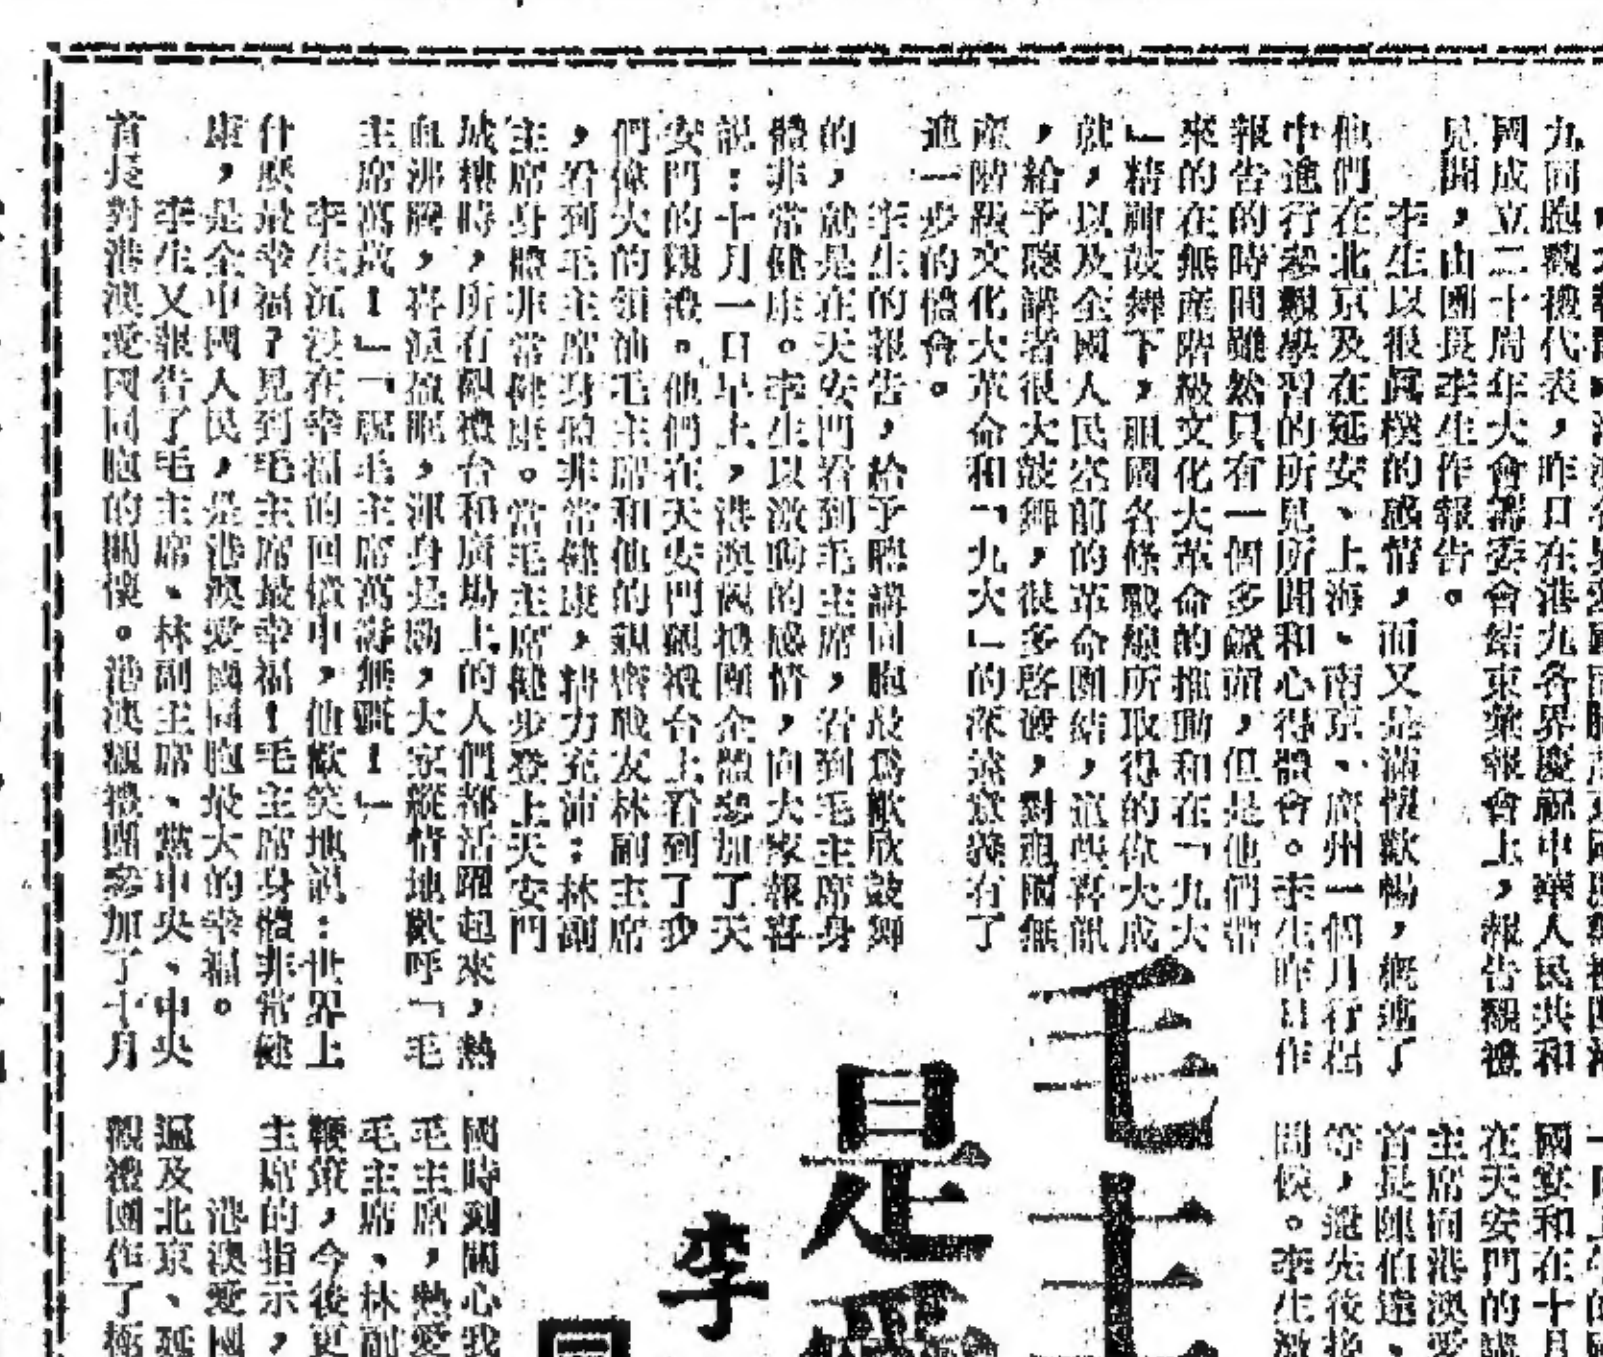 九同胞觀禮代表，昨日在港九各界慶祝中華人民共和
國成立二十周年大會籌委會結束彙報會上，報告觀禮
見聞，由團長李生作報告。
李生以很眞樸的感情，而又是滿懷歡暢，概述了
他們在北京及在延安、上海、南京、廣州一個月行程
中進行參觀學習的所見所聞和心得體會。李生昨日作
報告的時間雖然只有一個多鐘頭，但是他們帶
來的在無產階級文化大革命的推動和在「九大
」精神鼓舞下，祖國各條戰線所取得的偉大成
就，以及全國人民空前的革命團結，這些喜訊
，給予聽講者很大鼓舞，很多啓發，對祖國無
產階級文化大革命和「九大」的深遠意義有了
進一步的體會。
李生的報告，給予聽講同胞最爲歡欣鼓舞
的，就是在天安門看到毛主席，看到毛主席身
體非常健康。李生以激動的感情，向大家報喜
說：十月一日早上，港澳觀禮團全體參加了天
安門的觀禮。他們在天安門觀禮台上看到了我
們偉大的領袖毛主席和他的親密戰友林副主席
，看到毛主席身體非常健康，精力充沛；林副
主席身體非常健康。當毛主席健步登上天安門
城樓時，所有觀禮台和廣場上的人們都活躍起來，熱
血沸騰，喜淚盈眶，渾身是勁，大家縱情地歡呼「毛
主席萬歲！」「祝毛主席萬壽無疆！」
李生沉浸在幸福的回憶中，他歡笑地說：世界上
什麽最幸福？見到毛主席最幸福！毛主席身體非常健
康，是全中國人民，是港澳愛國同胞最大的幸福。
李生又報告了毛主席、林副主席、黨中央、中央
首長對港澳愛國同胞的關懷。港澳觀禮團參加了十月
毛主
是
李
國宴和在十
在天安門的
主席向港澳愛
首長陳伯達、
等，還先後接
問候。李生激
國時刻關心我
毛主席，熱愛
毛主席、林副
鞭策，今後更
主席的指示，
港澳愛國
遍及北京、延
觀禮團作了極